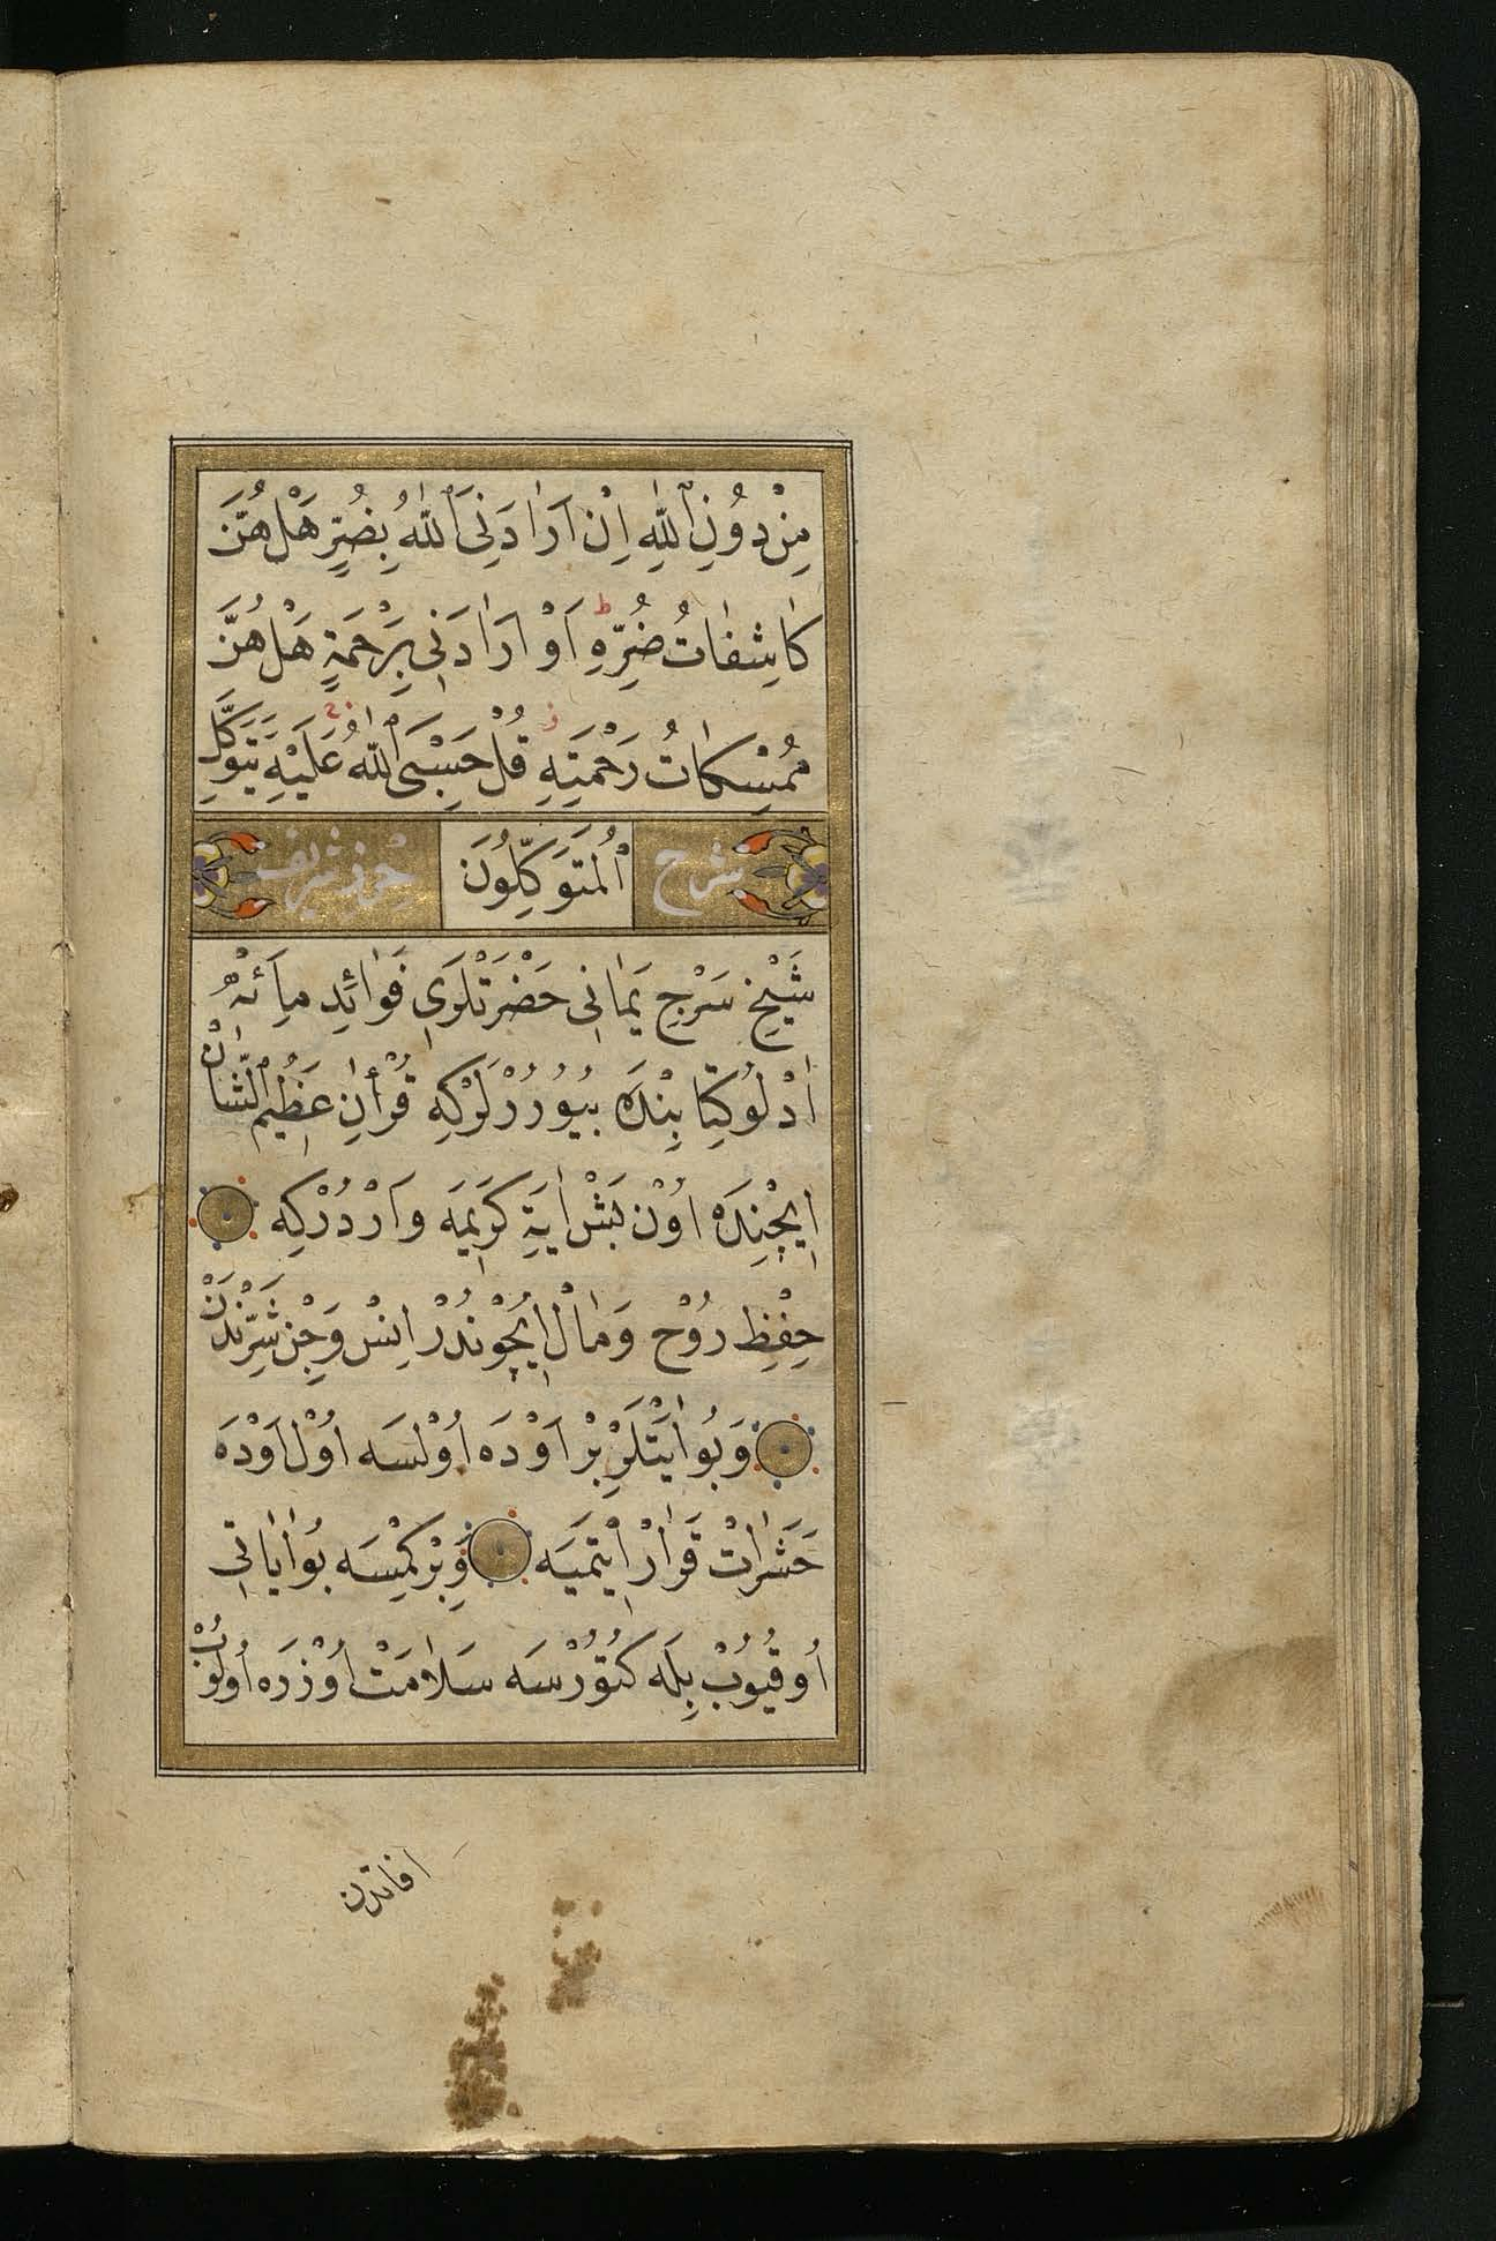 مِنْ دُونِ ٱللّٰهِ اِنْ اَرَادَنِىَ ٱللّٰهُ بِضُرٍّ هَلْ هُنَّ
كَاشِفَاتُ ضُرِّهِ ط اَوْ اَرَادَنِى بِرَحْمَةٍ هَلْ هُنَّ
مُمْسِكَاتُ رَحْمَتِهِ قُلْ حَسْبِىَ ٱللّٰهُ عَلَيْهِ يَتَوَكَّلُ
شرح ٱلْمُتَوَكِّلُونَ حرز شريف
شَيْخِ سَرْجِ يَمَانِى حَضْرَتْلَرِى فَوَائِدِ مِائَهْ
ادْلُو كِتَابِنْدَه بُيُورُرْلَرْكِه قُرْأٰنِ عَظِيمُ الشَّانْ
اِيچِنْدَه اُوْنْ بَشْ اٰيَةِ كَرِيمَه وَارْدُرْكِه
حِفْظِ رُوْح وَمَالْ اِيچُوْنْدُرْ اِنْسْ وَجِنْ شَرِّنْدَنْ
وَبُو اٰيَتْلَرْ بِرْ اَوْدَه اُوْلْسَه اُوْلْ اَوْدَه
حَشَرَاتْ قَرَارْ اِيتْمَيَه وَبِرْ كِمْسَه بُو اٰيَاتِى
اُوقُيُوبْ بِلَه كُتُوْرْسَه سَلَامَتْ اُوْزْرَه اُولُوبْ
افاتدن